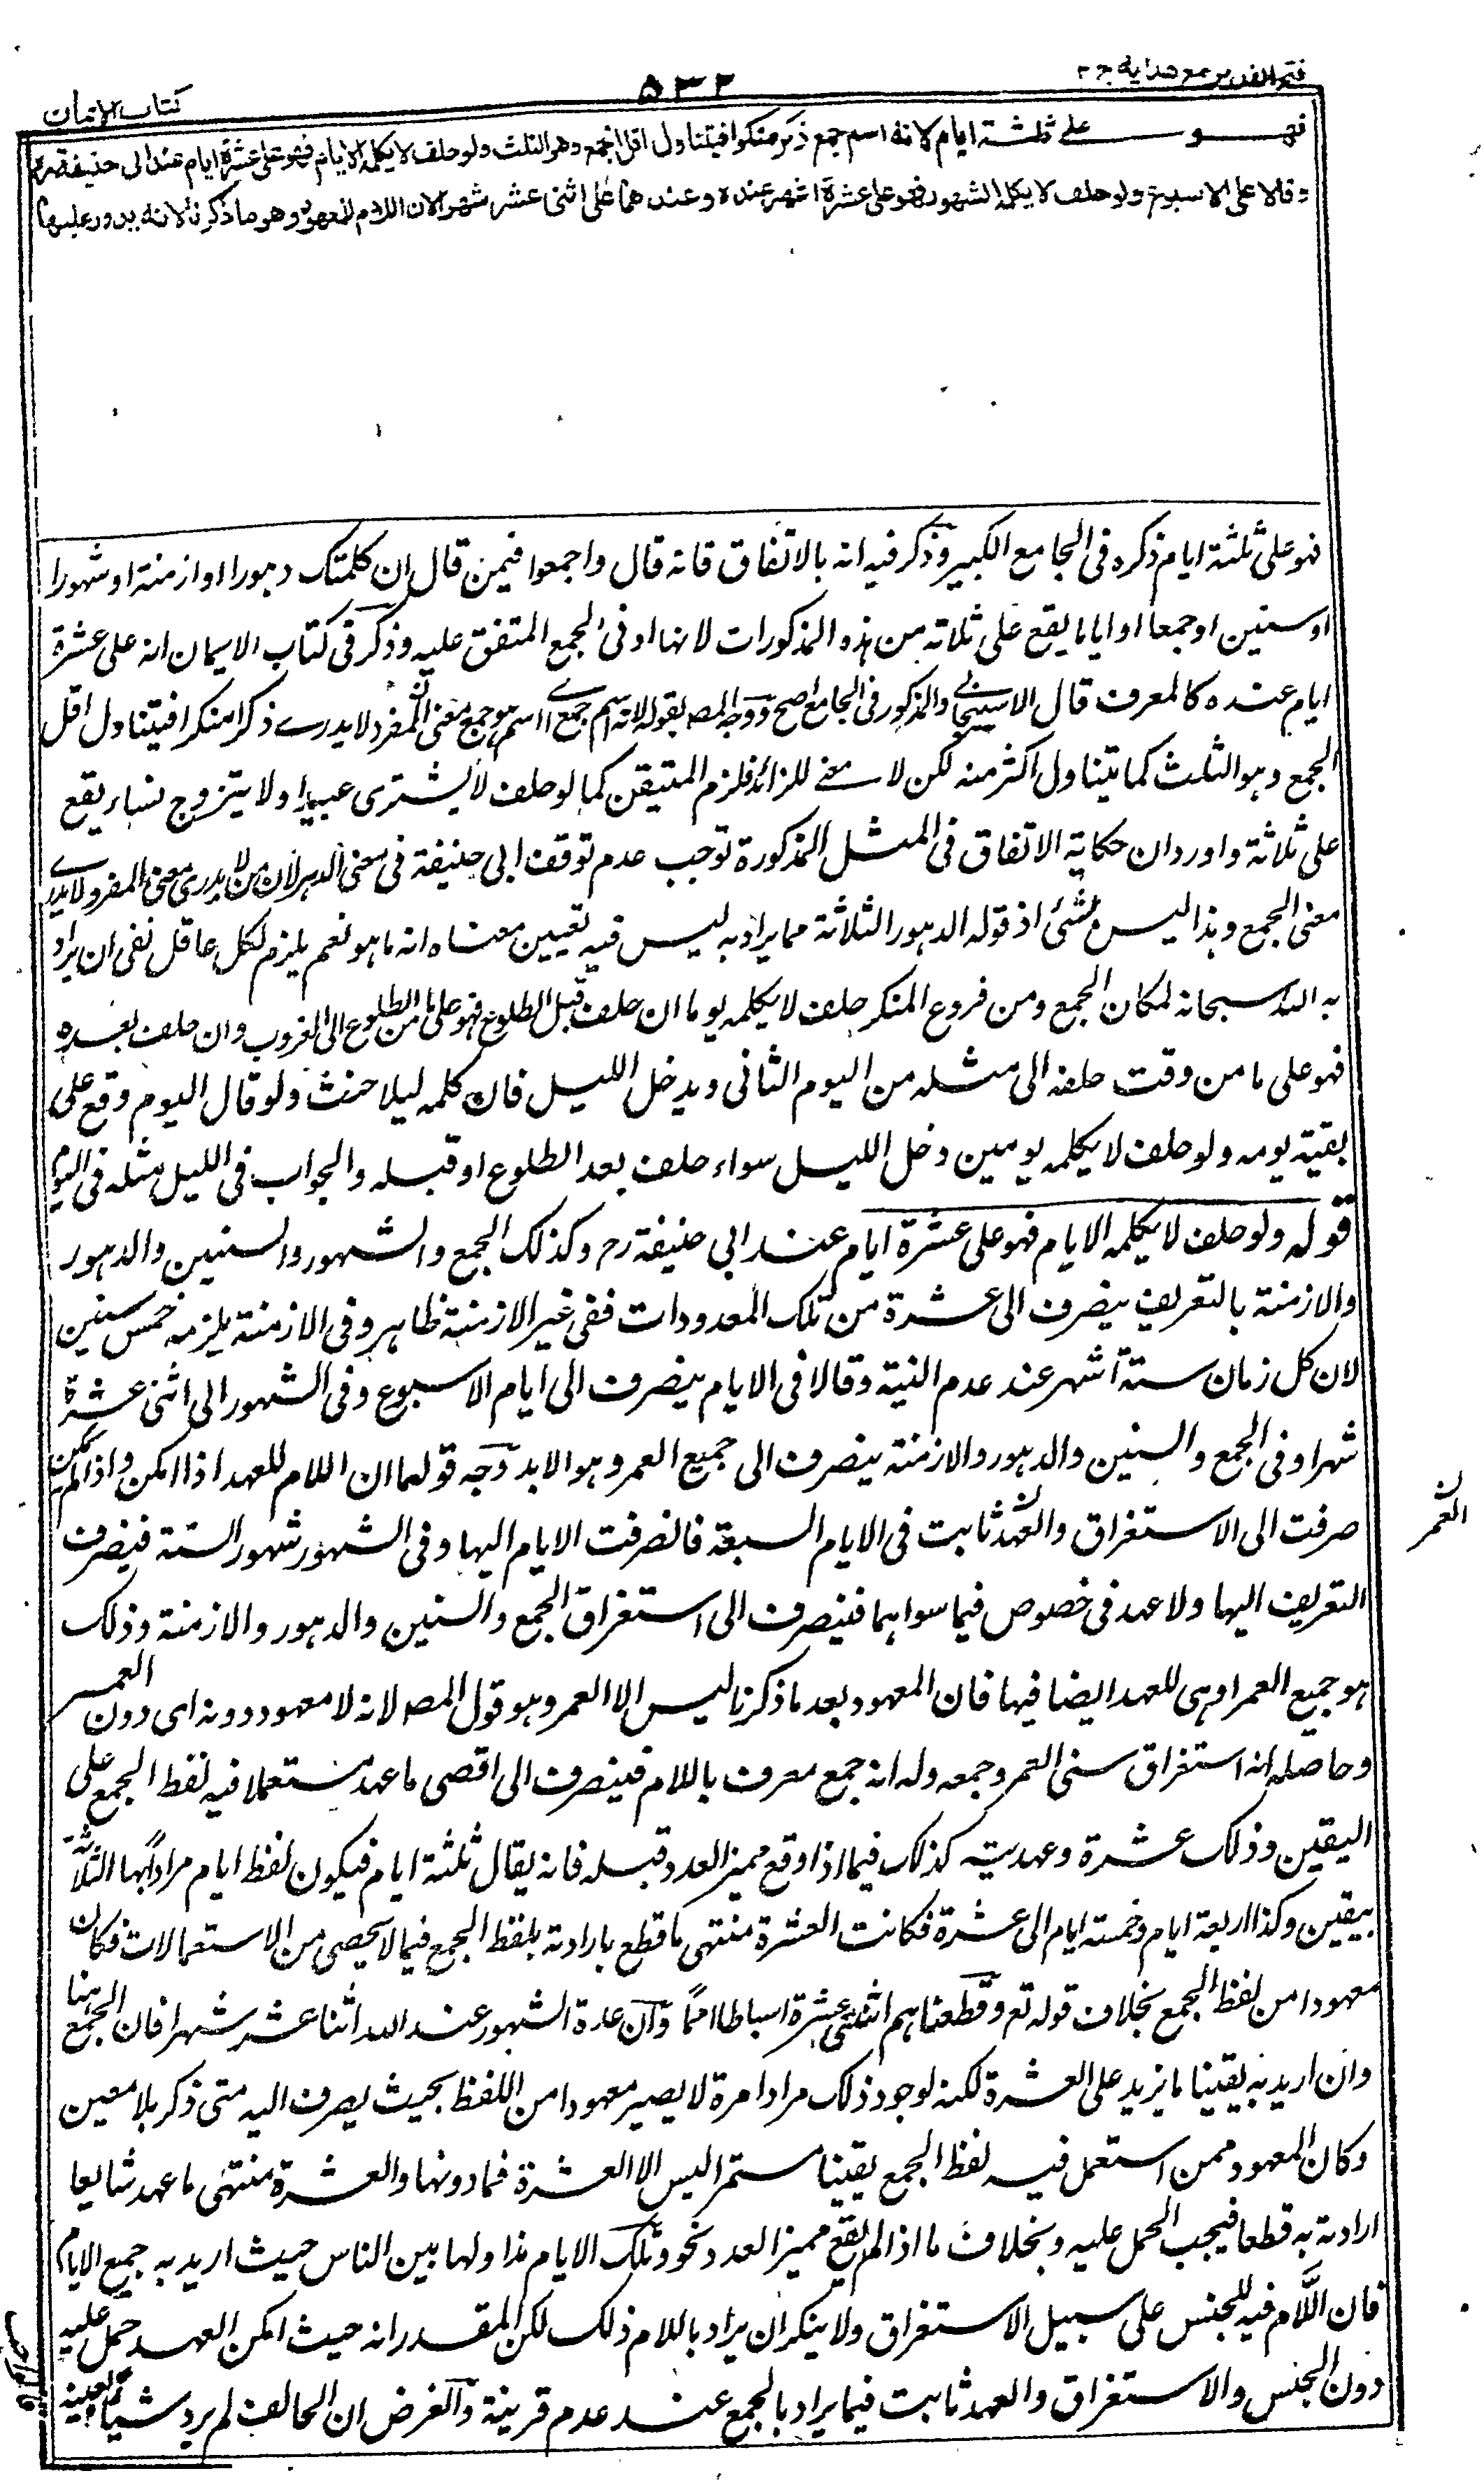 فتح القدير مع هدايه ج ٢
٥٣٢
كتاب الايمان
فهو على ثلثة ايام لانه اسم جمع ذكر منكرا فيتناول اقل الجمع وهو الثلث ولو حلف لا يكلمه الايام فهو على عشرة ايام عند ابى حنيفة رح
وقالا على الاسبوع ولو حلف لا يكلمه الشهور فهو على عشرة اشهر عنده وعندهما على اثنى عشر شهرا لان اللام للمعهود وهو ما ذكرنا لانه يدور عليها
فهو على ثلثة ايام ذكره فى الجامع الكبير وذكر فيه انه بالاتفاق فانه قال واجمعوا فيمن قال ان كلمتك دهورا او ازمنة او شهورا
او سنين او جمعا او اياما يقع على ثلاثة من هذه المذكورات لانها ادنى الجمع المتفق عليه وذكر فى كتاب الايمان انه على عشرة
ايام عنده كالمعرف قال الاسبيجابى والمذكور فى الجامع اصح ووجه المص بقوله لانه اسم جمع اى اسم هو جمع معنى لان المفرد لا يدرى ذكر منكرا فيتناول اقل
الجمع وهو الثلث كما يتناول اكثر منه لكن لا معنى للزائد فلزم المتيقن كما لو حلف لا يشترى عبيدا ولا يتزوج نساء يقع
على ثلاثة واورد ان حكاية الاتفاق فى المثل المذكورة توجب عدم توقف ابى حنيفة فى معنى الدهر لان من لا يدرى معنى المفرد لا يدرى
معنى الجمع وهذا ليس بشئ اذ قوله الدهور الثلاثة مما يراد به ليس فيه تعيين معناه انه ما هو نعم يلزم لكل عاقل نفى ان يراد
به الله سبحانه لمكان الجمع ومن فروع المنكر حلف لا يكلمه يوما ان حلف قبل الطلوع فهو على ما من الطلوع الى الغروب وان حلف بعده
فهو على ما من وقت حلفه الى مثله من اليوم الثانى ويدخل الليل فان كلمه ليلا حنث ولو قال اليوم وقع على
بقية يومه ولو حلف لا يكلمه يومين دخل الليل سواء حلف بعد الطلوع او قبله والجواب فى الليل مثله فى اليوم
قوله ولو حلف لا يكلمه الايام فهو على عشرة ايام عند ابى حنيفة رح وكذلك الجمع والشهور والسنين والدهور
والازمنة بالتعريف ينصرف الى عشرة من تلك المعدودات ففى غير الازمنة ظاهر وفى الازمنة يلزمه خمس سنين
لان كل زمان ستة اشهر عند عدم النية وقالا فى الايام ينصرف الى ايام الاسبوع وفى الشهور الى اثنى عشرة
شهرا وفى الجمع والسنين والدهور والازمنة ينصرف الى جميع العمر وهو الابد وجه قولهما ان اللام للعهد اذا امكن واذا لم يمكن
صرفت الى الاستغراق والعهد ثابت فى الايام السبعة فانصرفت الايام اليها وفى الشهور شهور السنة فينصرف
التعريف اليها ولا عهد فى خصوص فيما سواهما فينصرف الى استغراق الجمع والسنين والدهور والازمنة وذلك
هو جميع العمر او هى للعهد ايضا فيها فان المعهود بعد ما ذكرنا ليس الا العمر وهو قول المص لانه لا معهود دونه اى دون العمر
وحاصله انه استغراق سنى العمر وجمعه وله انه جمع معرف باللام فينصرف الى اقصى ما عهد مستعملا فيه لفظ الجمع على
اليقين وذلك عشرة وعهديته كذلك فيما اذا وقع مميز العدد قبله فانه يقال ثلثة ايام فيكون لفظ ايام مرادا بها الثلاثة
بيقين وكذا اربعة ايام وخمسة ايام الى عشرة فكانت العشرة منتهى ما قطع بارادته بلفظ الجمع فيما لا يحصى من الاستعمالات فكان
معهودا من لفظ الجمع بخلاف قوله تع وقطعناهم اثنتى عشرة اسباطا امما وان عدة الشهور عند الله اثنا عشر شهرا فان الجمع هنا
وان اريد به يقينا ما يزيد على العشرة لكنه لوجود ذلك مرادا مرة لا يصير معهودا من اللفظ بحيث يصرف اليه متى ذكر بلا معين
وكان المعهود ممن استعمل فيه لفظ الجمع يقينا مستمرا ليس الا العشرة فما دونها والعشرة منتهى ما عهد شايعا
ارادته به قطعا فيجب الحمل عليه وبخلاف ما اذا لم يقع مميز العدد نحو وتلك الايام نداولها بين الناس حيث اريد به جميع الايام
فان اللام فيه للجنس على سبيل الاستغراق ولا ينكر ان يراد باللام ذلك لكن المقدر انه حيث امكن العهد حمل عليه
دون الجنس والاستغراق والعهد ثابت فيما يراد بالجمع عند عدم قرينة والغرض ان الحالف لم يرد شيئا بعينه
العمر